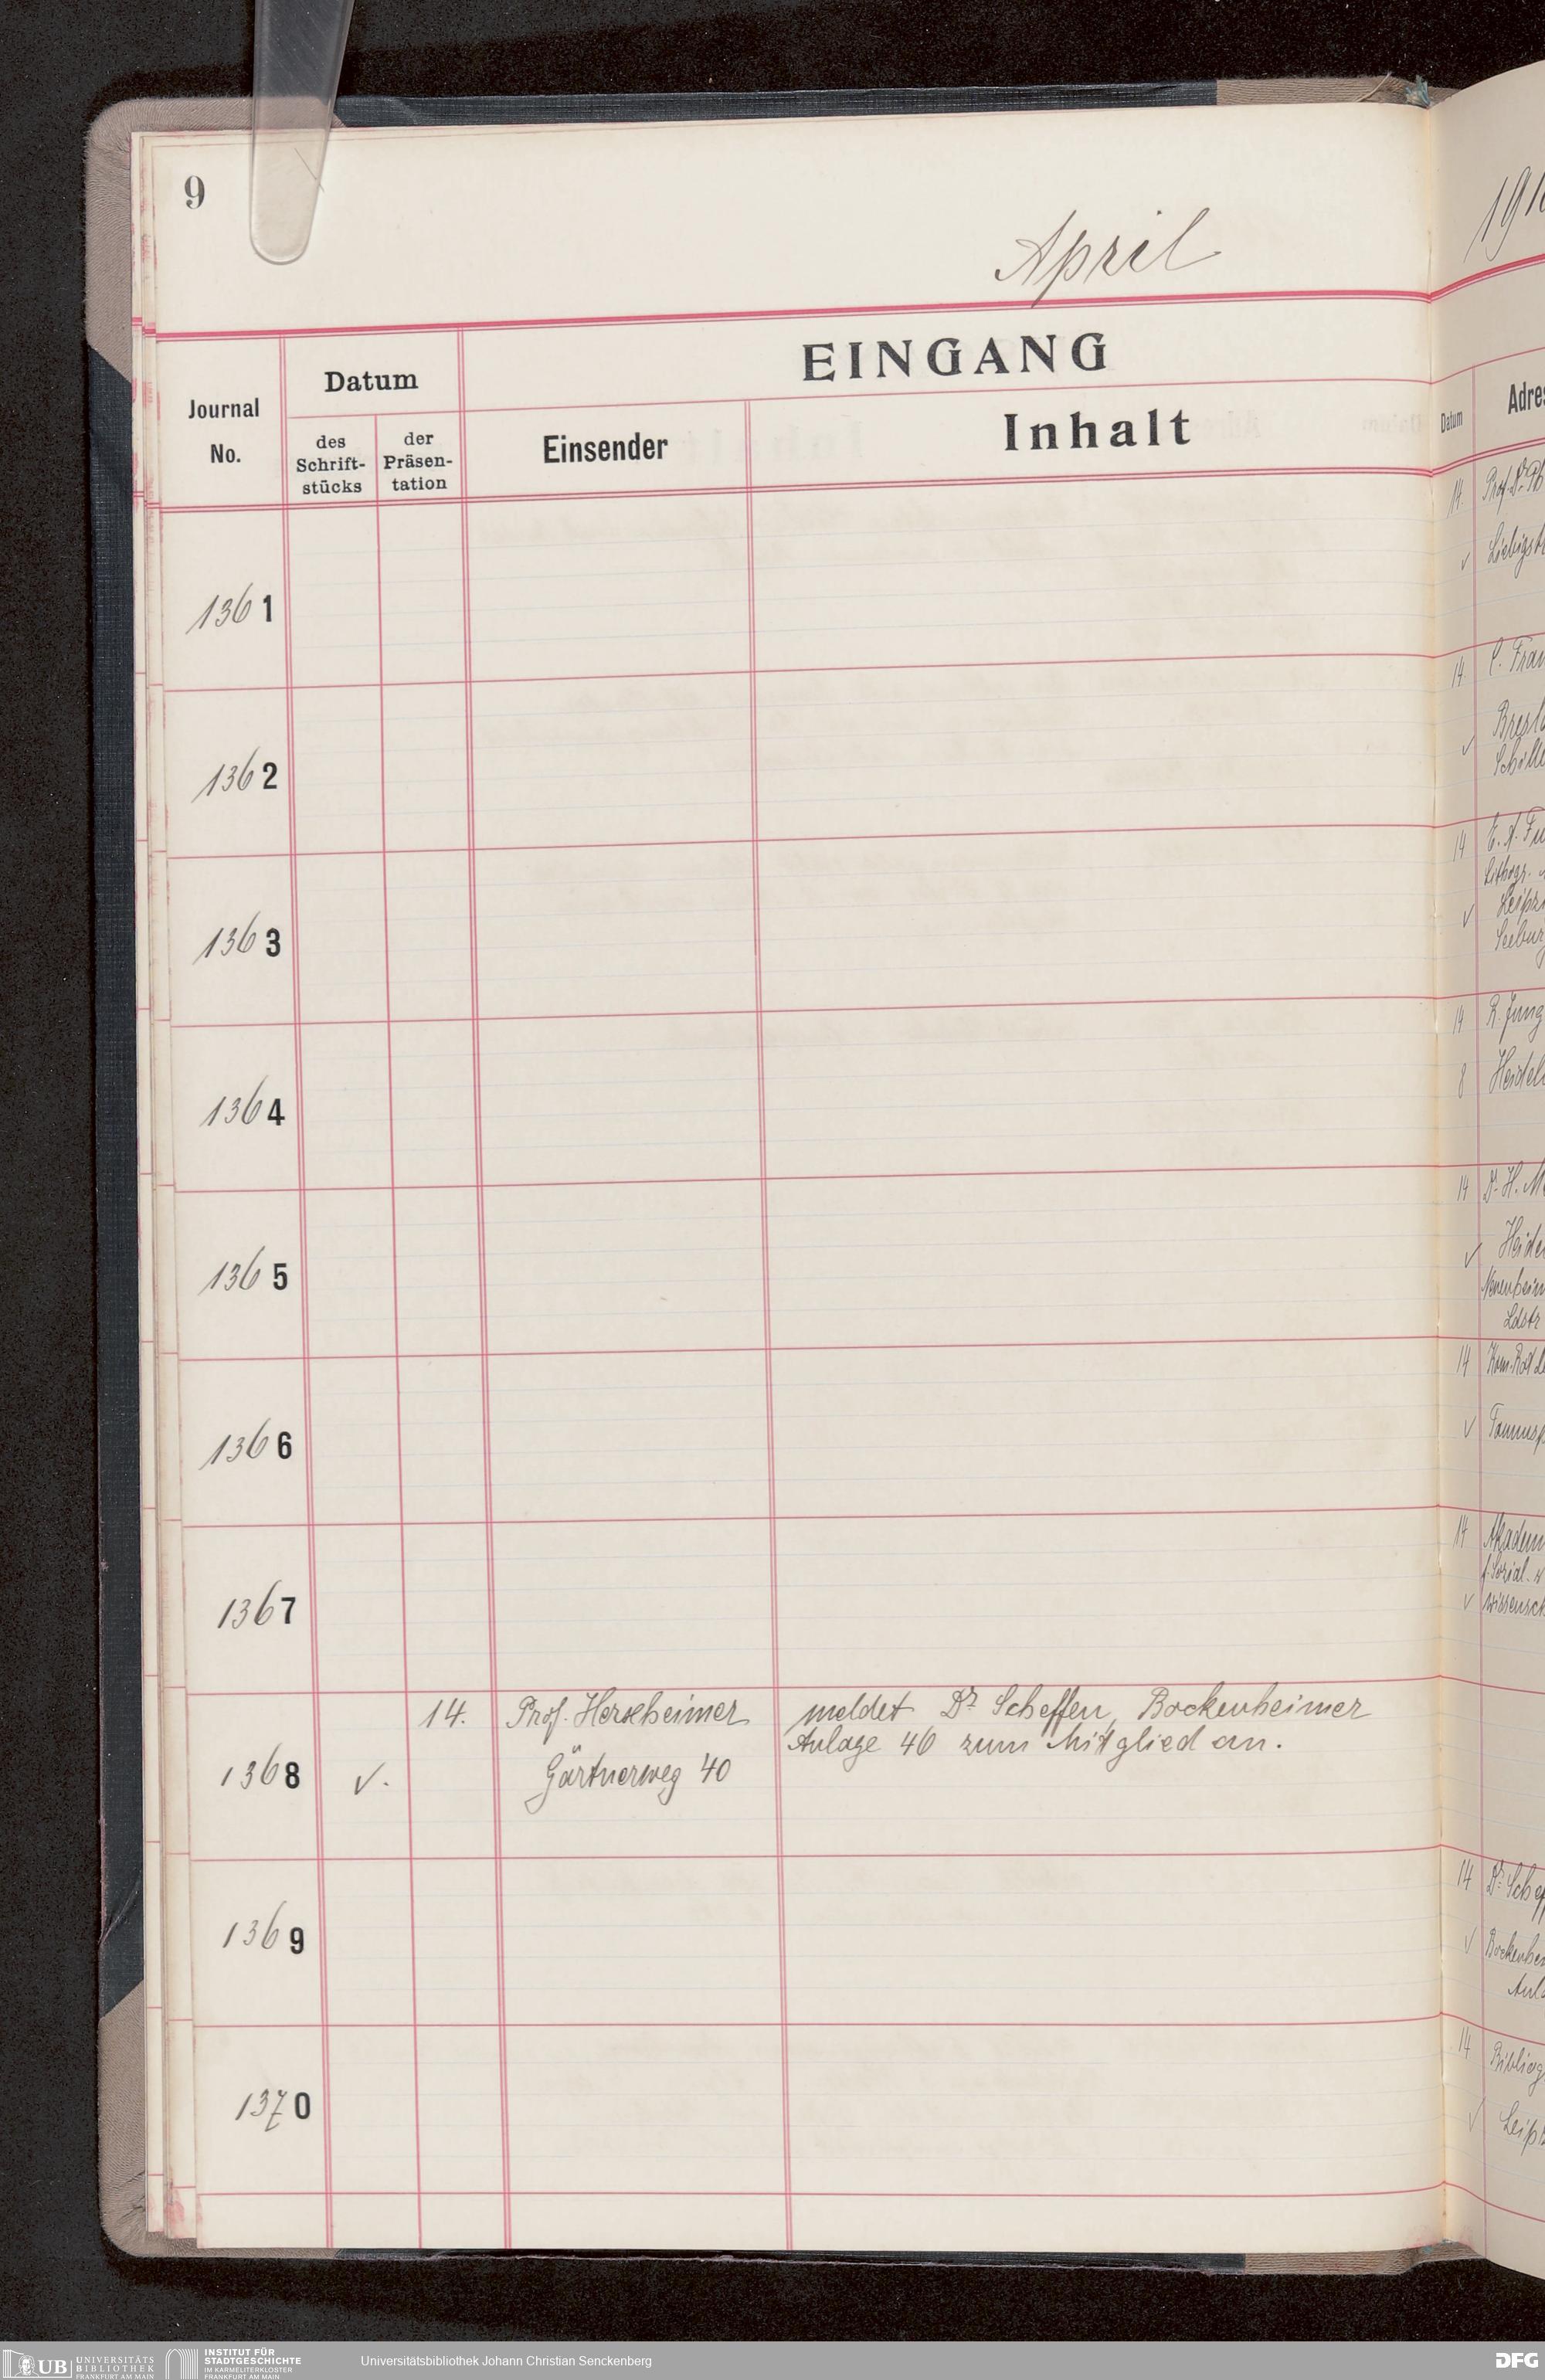 9
April
EINGANG
Journal
No.
Datum
des
Schrift-
stücks
der
Präsen-
tation
Einsender
Inhalt
1361
1362
1363
1364
1365
1366
1367
1368
v.
14.
Prof. Herxheimer
Gärtnerweg 40
meldet Dr. Scheffen, Bockenheimer
Anlage 46 zum Mitglied an.
1369
1370
191
Datum
Adres
14.
Prof. Dr.
v
Liebigst
14.
C. Fran
Bresl
v
Schille
14
E. A. Fu
Lithogr.
Leipzi
v
Seebur
14
R. Jung
8
Heidel
14
Dr. H. M
Heide
v
Neuenheim
Ldstr
14
Kom. Rat
v
Taunus
14
Akadem
f. Sozial.
v
wissensch
14
Dr. Schef
v
Bockenhei
Anla
14
Bibliog
v
Leipz
UB UNIVERSITÄTS
BIBLIOTHEK
FRANKFURT AM MAIN
INSTITUT FÜR
STADTGESCHICHTE
IM KARMELITERKLOSTER
FRANKFURT AM MAIN
Universitätsbibliothek Johann Christian Senckenberg
DFG